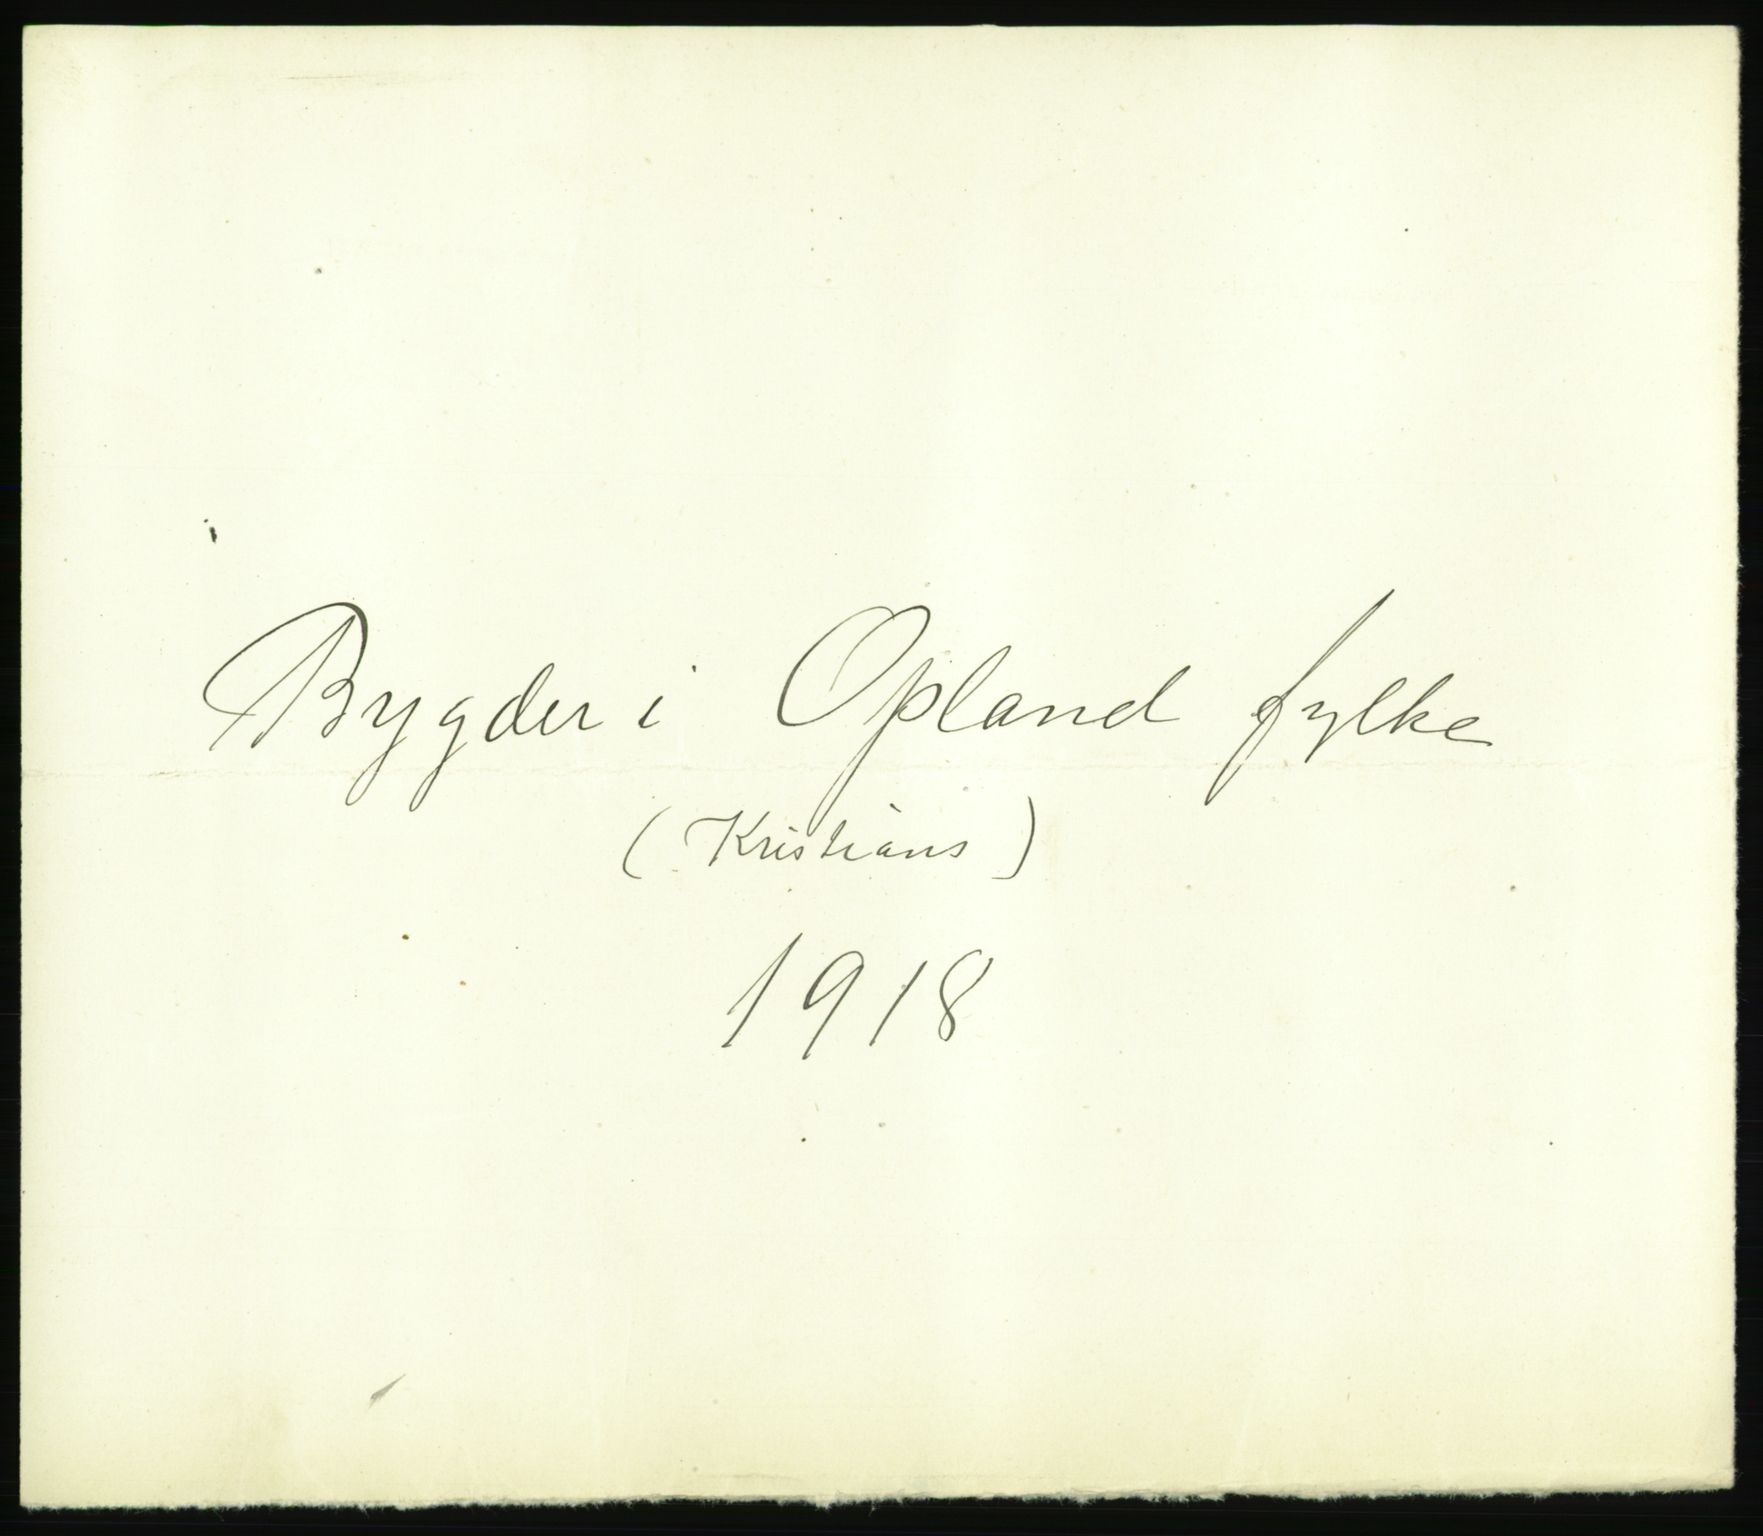 Bygder i Opland fylke
(Kristians)
1918